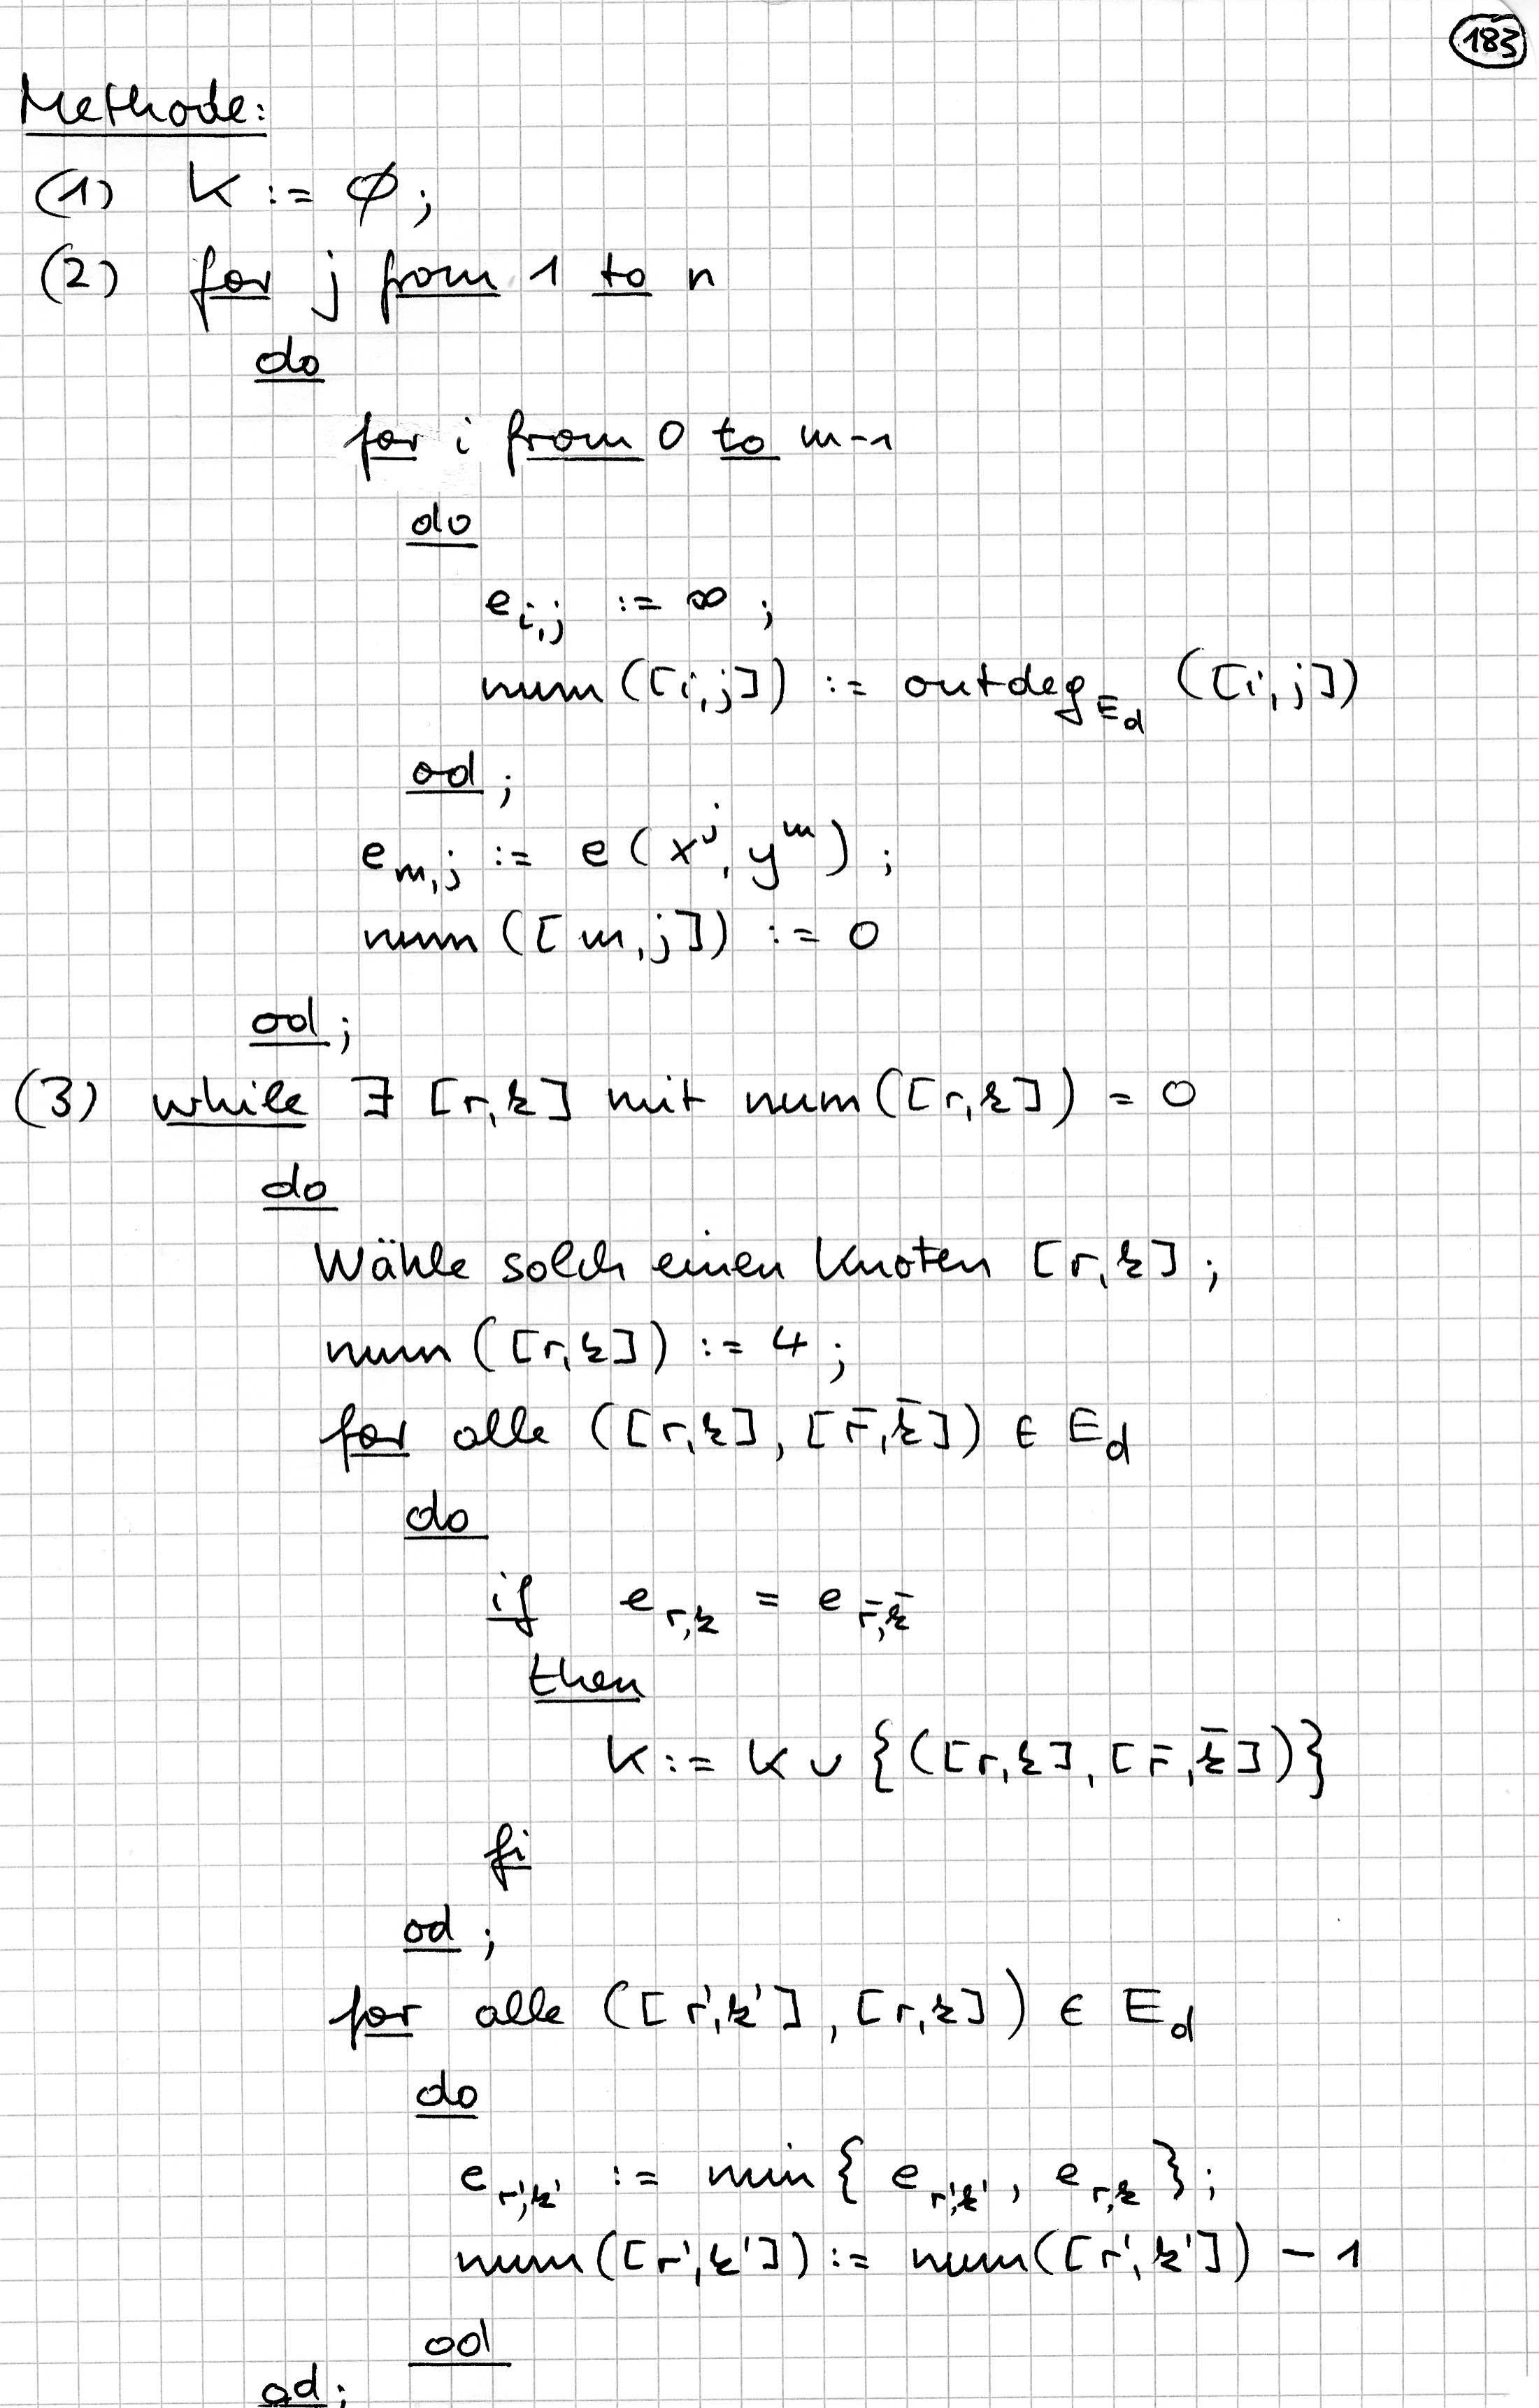 183
Methode:
(1) K := ∅;
(2) for j from 1 to n
do
for i from 0 to m-1
do
e_{i,j} := ∞ ;
num([i,j]) := outdeg_{E_d} ([i,j])
od ;
e_{m,j} := e(x^j, y^m) ;
num([m,j]) := 0
od ;
(3) while ∃ [r,k] mit num([r,k]) = 0
do
Wähle solch einen Knoten [r,k] ;
num([r,k]) := 4 ;
for alle ([r,k], [r̄,k̄]) ∈ E_d
do
if e_{r,k} = e_{r̄,k̄}
then
K := K ∪ {([r,k], [r̄,k̄])}
fi
od ;
for alle ([r',k'], [r,k]) ∈ E_d
do
e_{r',k'} := min{ e_{r',k'}, e_{r,k} };
num([r',k']) := num([r',k']) - 1
od
od;